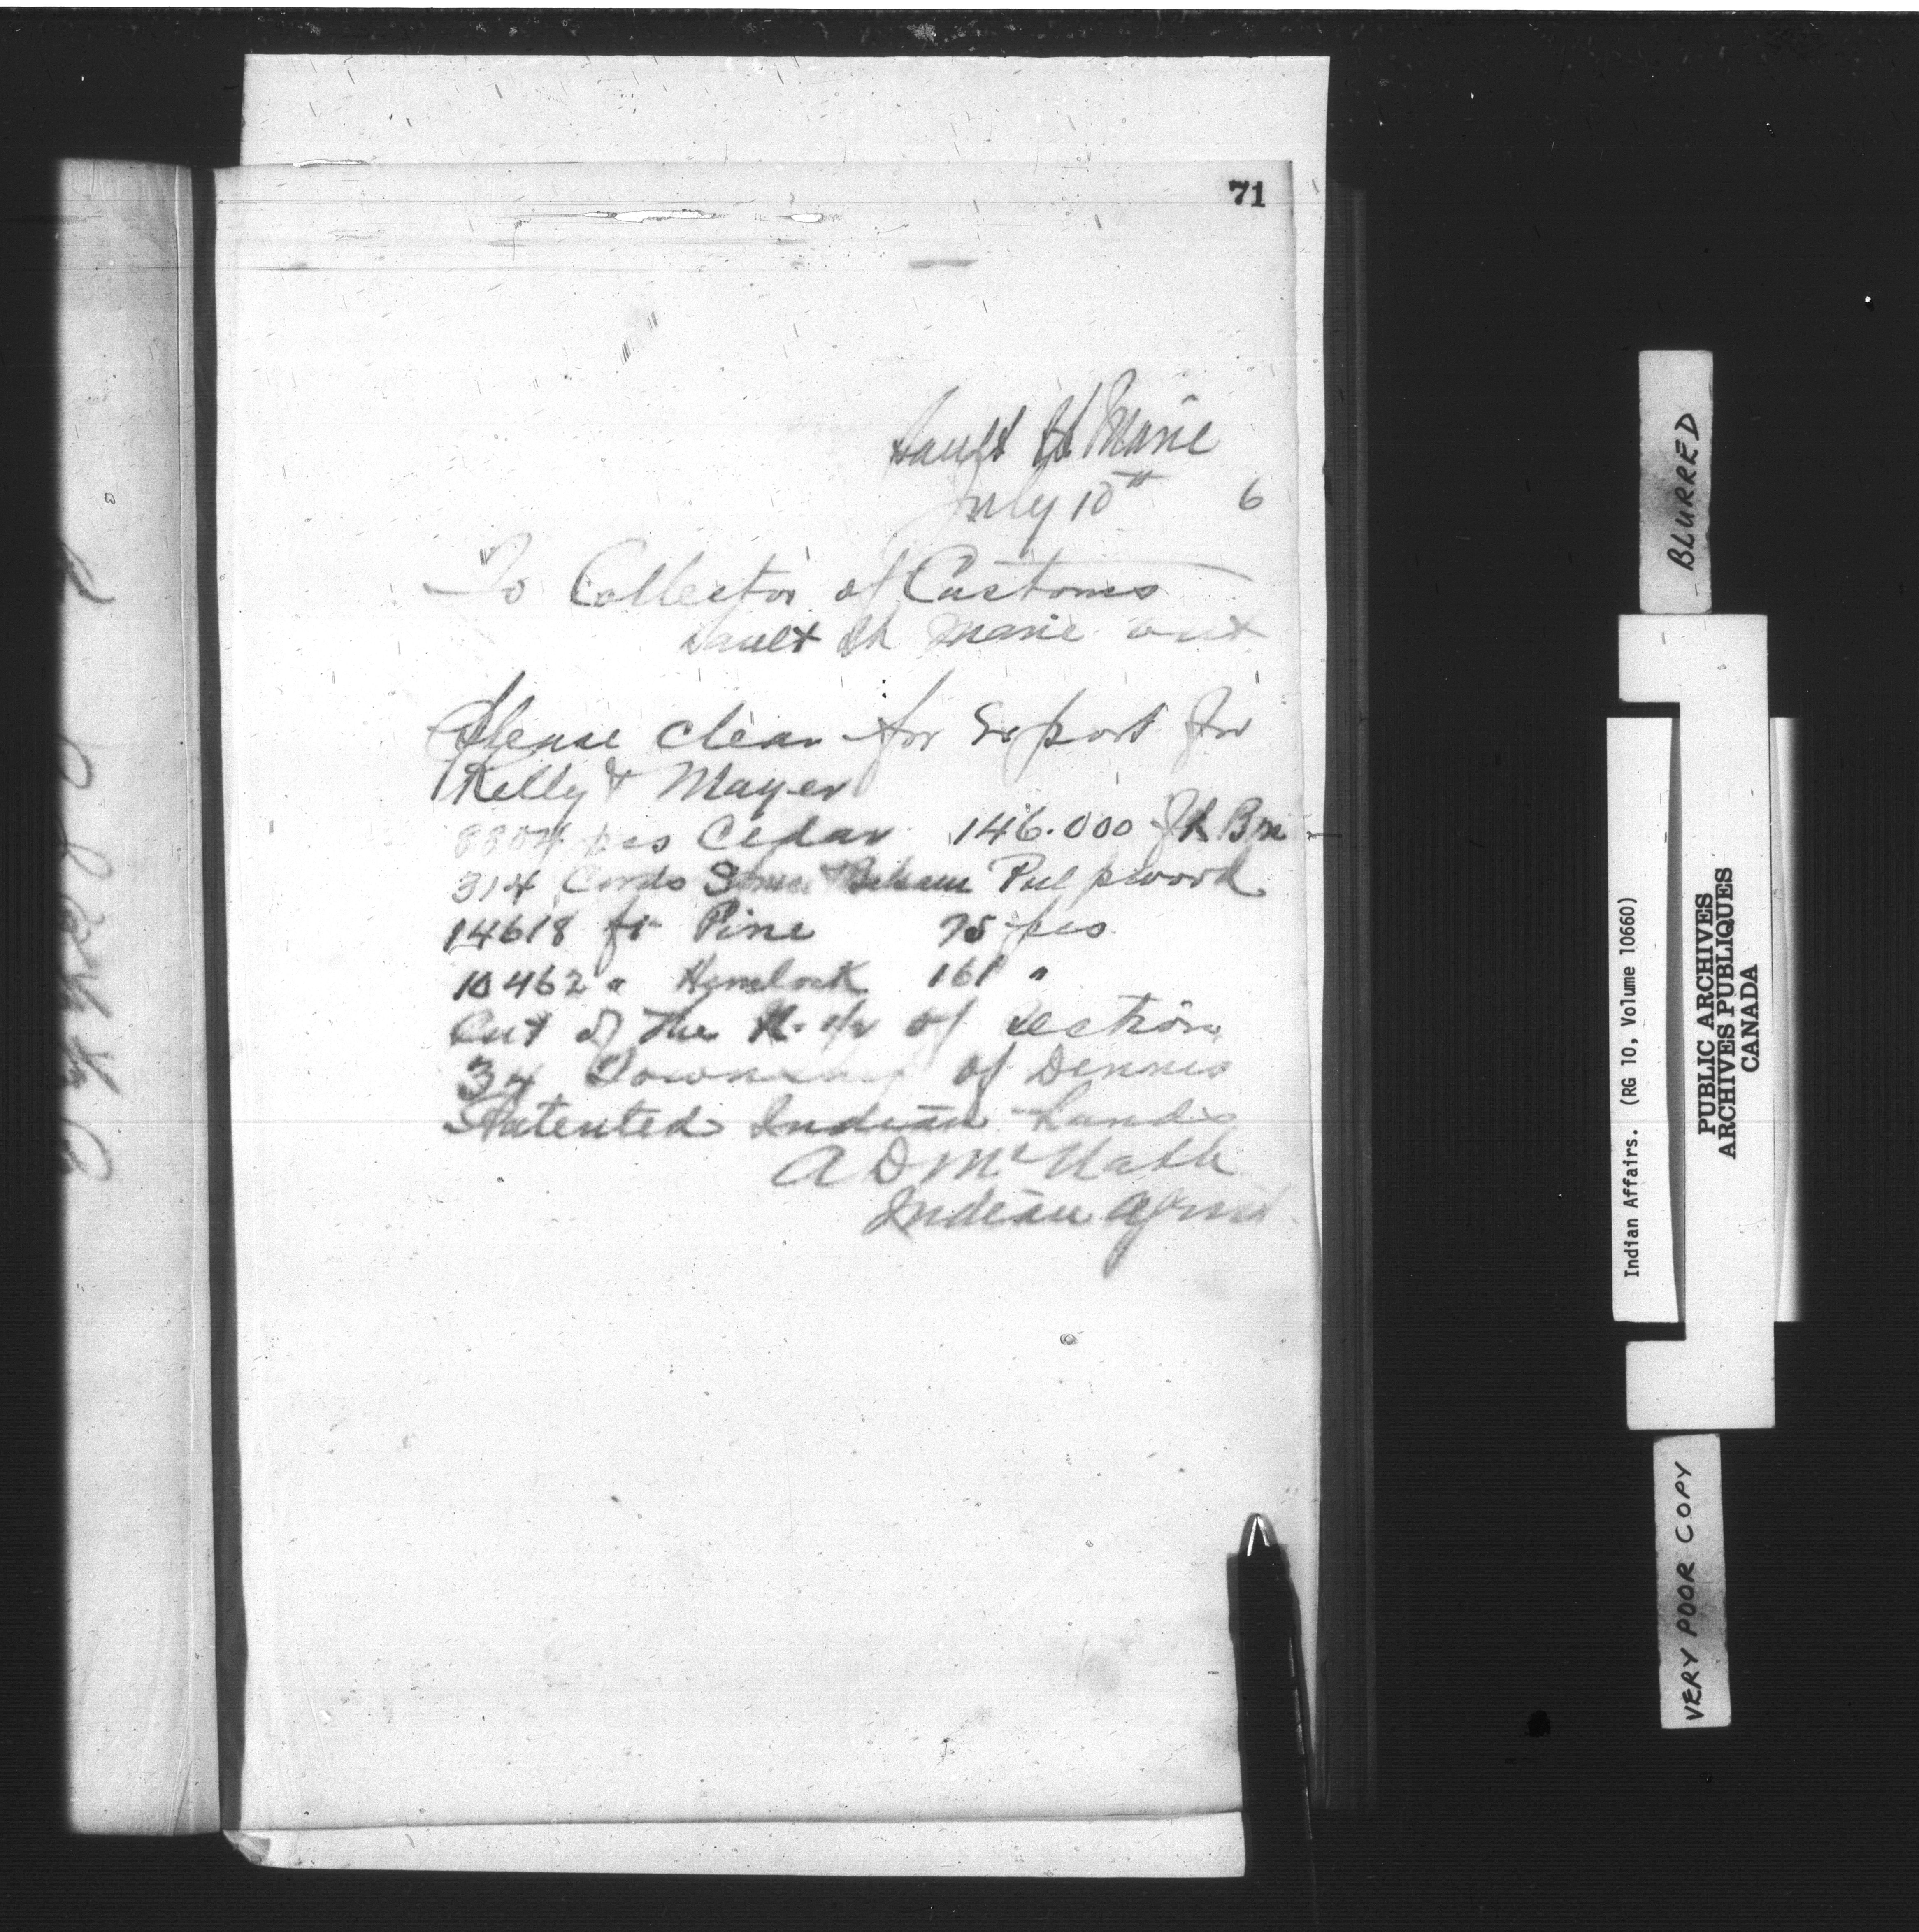 71
Sault St Marie
July 10th 6
To Collector of Customs
Sault St Marie Ont
Please clear for Export for
Kelly & Mayer
8804 pcs Cedar 146.000 ft Bm
314 Cords Spruce & Balsam Pulpwood
14618 ft Pine 75 pcs
10462 " Hemlock 161 "
Cut of the N. 1/2 of Section
34 Township of Dennis
Patented Indian Lands
A D McNabb
Indian Agent
BLURRED
Indian Affairs. (RG 10, Volume 10660)
PUBLIC ARCHIVES
ARCHIVES PUBLIQUES
CANADA
VERY POOR COPY